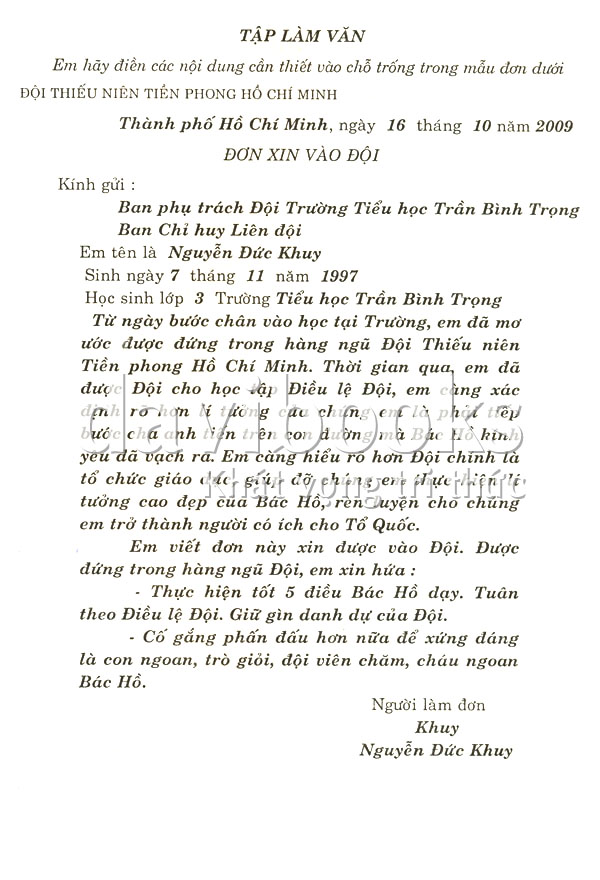 TẬP LÀM VĂN
Em hãy điền các nội dung cần thiết vào chỗ trống trong mẫu đơn dưới
ĐỘI THIẾU NIÊN TIỀN PHONG HỒ CHÍ MINH
Thành phố Hồ Chí Minh, ngày 16 tháng 10 năm 2009
ĐƠN XIN VÀO ĐỘI
Kính gửi :
Ban phụ trách Đội Trường Tiểu học Trần Bình Trọng
Ban Chỉ huy Liên đội
Em tên là Nguyễn Đức Khuy
Sinh ngày 7 tháng 11 năm 1997
Học sinh lớp 3 Trường Tiểu học Trần Bình Trọng
Từ ngày bước chân vào học tại Trường, em đã mơ
ước được đứng trong hàng ngũ Đội Thiếu niên
Tiền phong Hồ Chí Minh. Thời gian qua, em đã
được Đội cho học tập Điều lệ Đội, em càng xác
định rõ hơn lí tưởng của chúng em là phải tiếp
bước cha anh tiến trên con đường mà Bác Hồ kính
yêu đã vạch ra. Em càng hiểu rõ hơn Đội chính là
tổ chức giáo dục, giúp đỡ chúng em thực hiện lí
tưởng cao đẹp của Bác Hồ, rèn luyện cho chúng
em trở thành người có ích cho Tổ Quốc.
Em viết đơn này xin được vào Đội. Được
đứng trong hàng ngũ Đội, em xin hứa :
- Thực hiện tốt 5 điều Bác Hồ dạy. Tuân
theo Điều lệ Đội. Giữ gìn danh dự của Đội.
- Cố gắng phấn đấu hơn nữa để xứng đáng
là con ngoan, trò giỏi, đội viên chăm, cháu ngoan
Bác Hồ.
Người làm đơn
Khuy
Nguyễn Đức Khuy
davibooks
Khát vọng tri thức